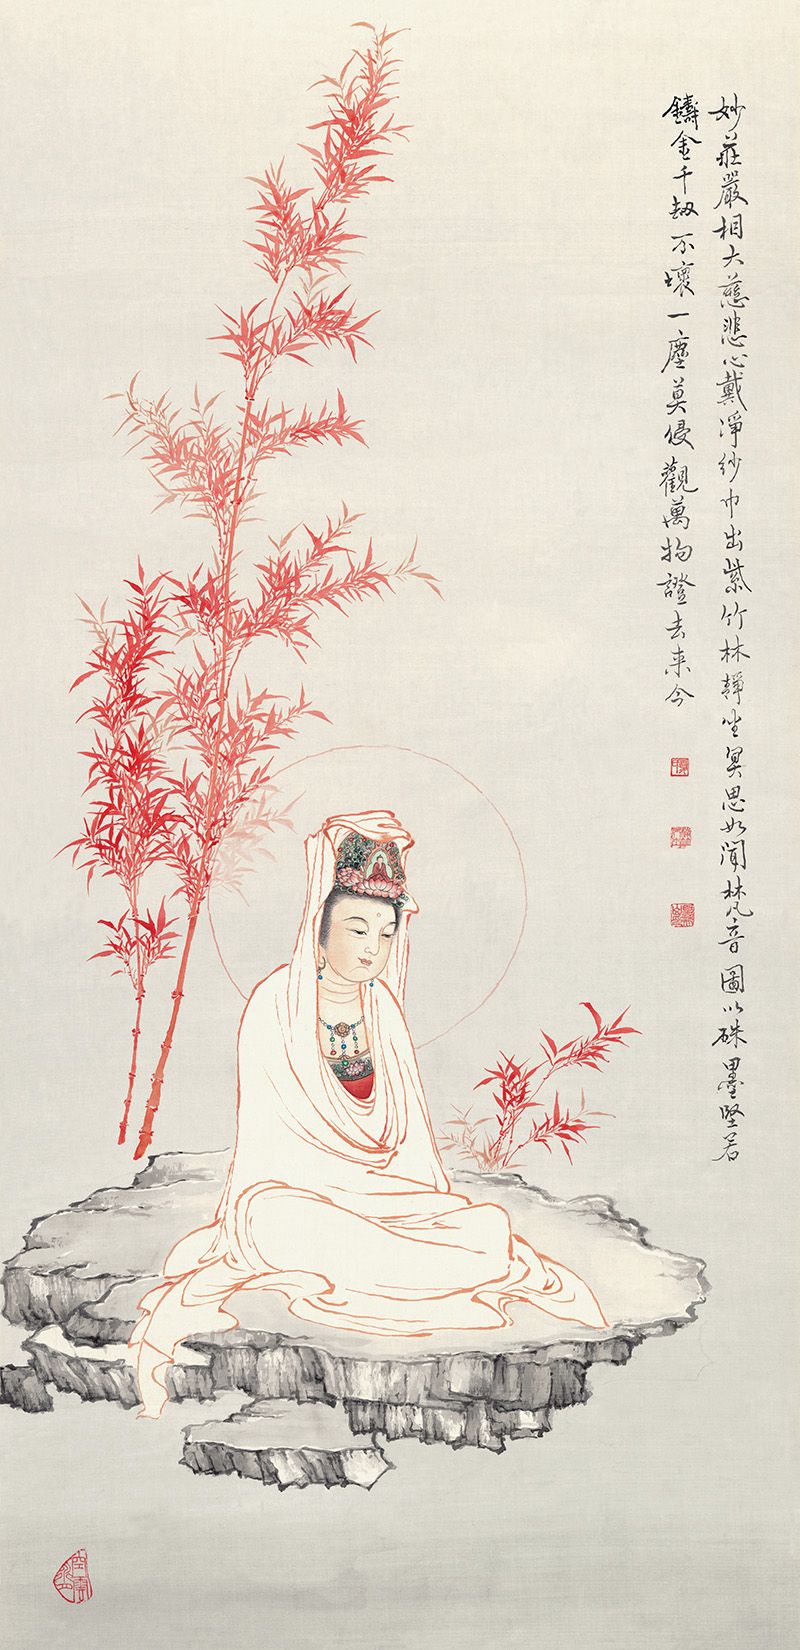 妙莊嚴相大慈悲心戴淨紗巾出紫竹林靜坐冥思如聞梵音圖以硃墨堅若
鑄金千劫不壞一塵莫侵觀萬物證去来今